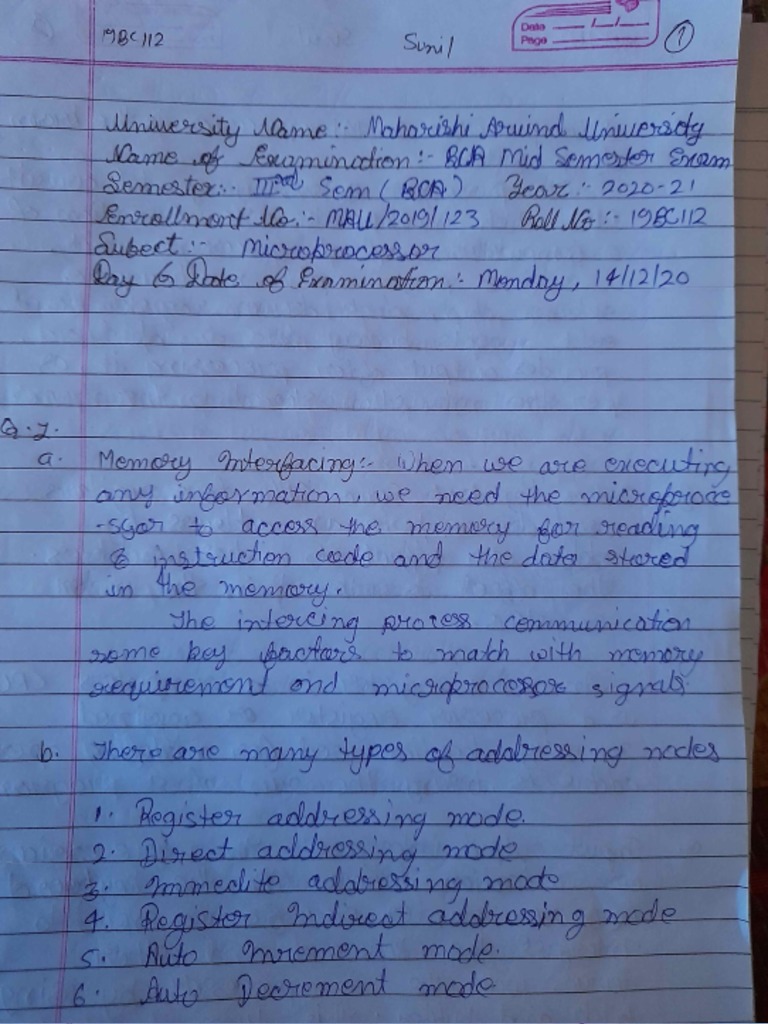 19BC112 Sunil Date __/__/__ 1
Page
University Name :- Maharishi Arvind University
Name of Examination :- BCA Mid Semester Exam
Semester :- IIIrd Sem (BCA) Year :- 2020-21
Enrollment No :- MAU/2019/123 Roll No :- 19BC112
Subect :- Microprocessor
Day & Date of Examination :- Monday, 14/12/20
a. Memory Interfacing :- When we are executing
any information, we need the microproce
-ssor to access the memory for reading
& instruction code and the data stored
in the memory.
The intercing process communication
some key factors to match with memory
requirement and microprocessor signals.
b. There are many types of addressing modes
1. Register addressing mode.
2. Direct addressing mode
3. Immedite addressing mode
4. Register Indirect addressing mode
5. Auto Inrement mode.
6. Auto Decrement mode